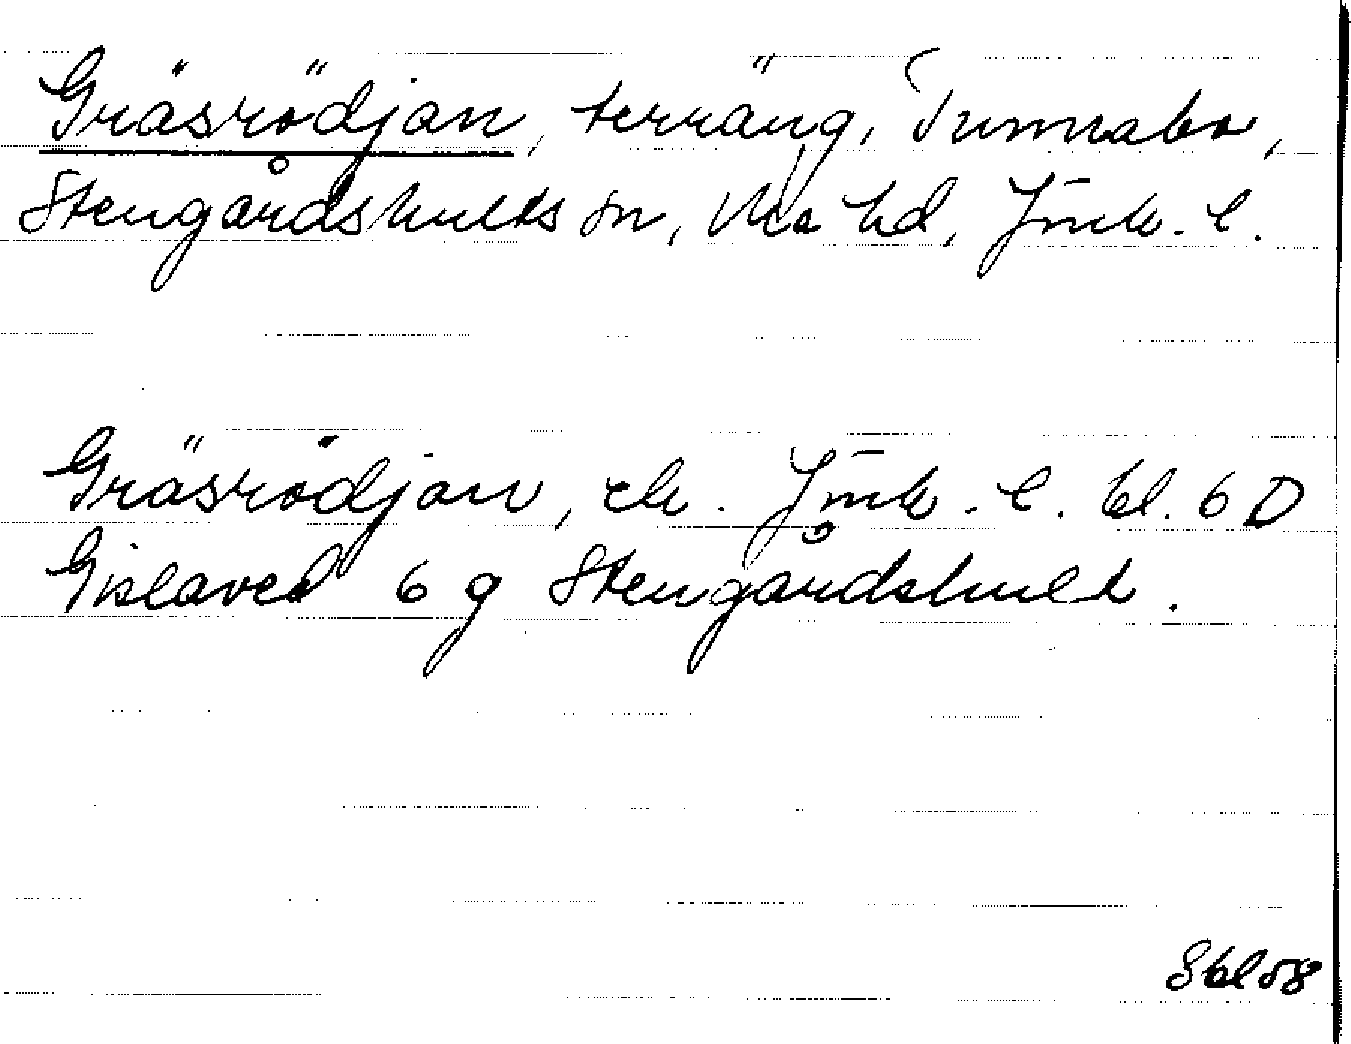 Gräsrödjan, terräng, Tunnabo,
Stengårdshults sn, Mo hd, Jmk. l.
Gräsrödjan, ek. Jmk. l. bl. 6 D
Gislaved 6 g Stengårdshult.
Sbl 58